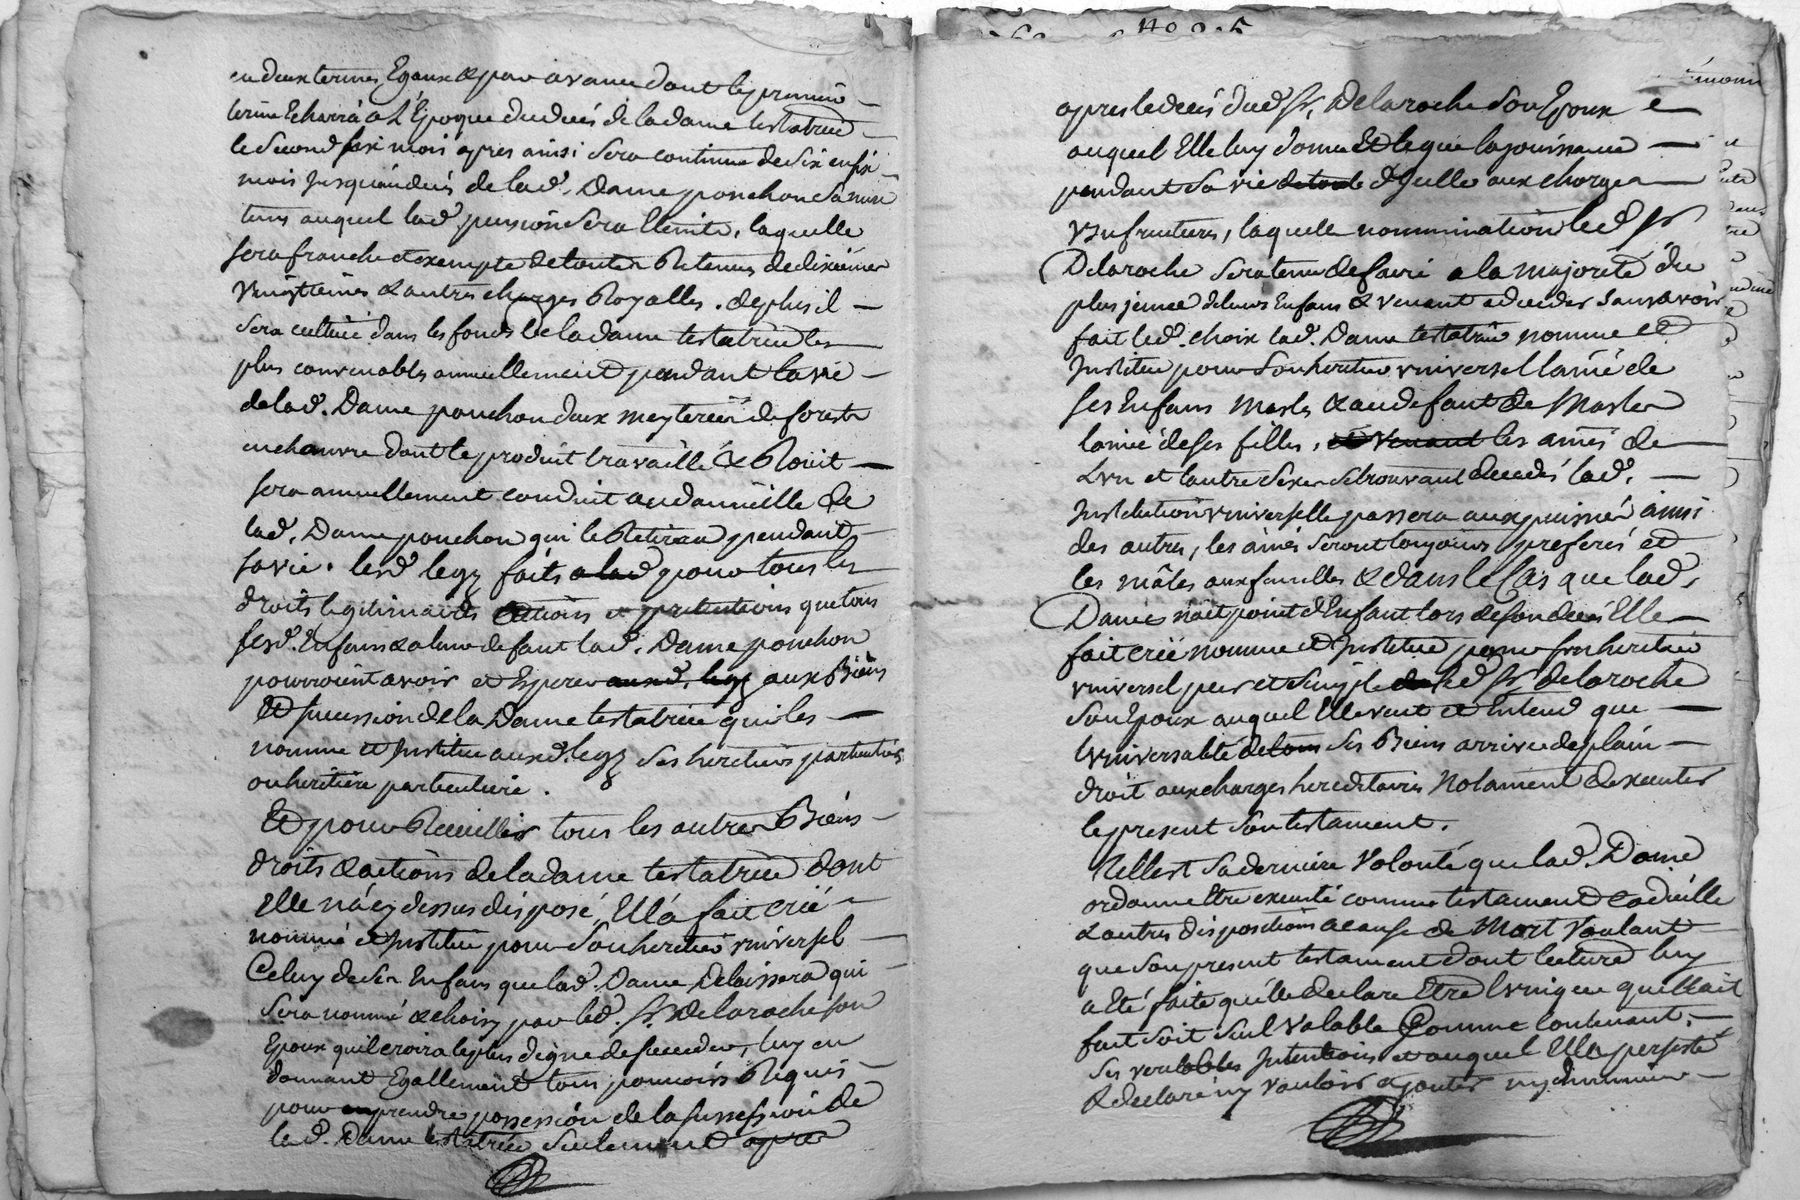 en deux termes Egaux & par avance dont le premier
terme Echerra a L'Epoque du deces de la dame testatrice
le second six mois apres ainsi sera continué de six en six
mois jusqu'au deces de lad. Dame ponchon sa mere
tems auquel lad. pension sera Eteinte, laquelle
sera franche et exempte de toutes Retenues de dixiemes
vingtiemes & autres charges Royalles. de plus il
sera cultivé dans les fonds de la dame testatrice les
plus convenables annuellement pendant la vie
de lad. Dame ponchon deux meyterées de
en chanvre dont le produit travaillé & Rouit
sera annuellement conduit au domicille de
lad. Dame ponchon qui le Retirera pendant
sa vie. lesd. legs faits a lad pour tous les
droits legitimaires actions et pretentions que tous
sesd. Enfans & a leur defaut lad. Dame ponchon
pourroient avoir et Esperer auxd. legs aux Biens
Et succession de la Dame testatrice qui les
nomme et Institue auxd. legs ses heritiers particuliers
ou heritiere particuliere.
Et pour Recueillir tous les autres Biens
droits & actions de la dame testatrice dont
Elle n'a cy dessus disposé, Ell'a fait créé
nommé et Institué pour son heritier universel
Celuy de ses Enfans que lad. Dame Delaissera qui
sera nommé & choisy par led. Sr. Delaroche son
Epoux qu'il croira le plus digne de succeder, luy en
donnant Egallement tous pouvoirs Requis
pour en prendre possession de la succession de
lad. Dame testatrice seulement apres
apres le deces dud. Sr. Delaroche son Epoux
auquel Elle luy donne Et legue la jouissance
pendant sa vie de toute d'Icelle aux charges
Usufructueres, laquelle nommination led Sr
Delaroche sera tenu de faire a la majorité du
plus jeune de leurs Enfans & venant a deceder sans avoir
fait led. choix lad. Dame testatrice nomme et
Institue pour son heritier universel l'ainé de
ses Enfans Masles & au defaut de Masles
l'ainée de ses filles, et venant les ainés de
L'vn et l'autre sexe se trouvant decedés lad.
Institution universelle passera aux puisnés ainsi
des autres, les ainés seront toujours preferés et
les mâles aux femelles & dans le Cas que lad.
Dame n'ait point d'Enfant lors de son deces Elle
fait créé nomme et Institue pour son heritier
universel pur et simple led Sr. delaroche
son Epoux auquel Elle veut et Entend que
Lvniversalité de tous ses Biens arrive de plain
droit aux charges hereditaires Notament d'executer
le present son testament.
Telle est sa derniere Volonté que lad. Dame
ordonne Etre executé comme testament codicille
& autres dispositions a cause de Mort Voulant
que son present testament dont lecture luy
a Eté faite qu'elle declare Etre L'vnique quelle ait
fait soit seul valable Comme Contenant
ses veritables Intentions et auquel Elle persiste
& declare n'y vouloir ajouter ny diminuer